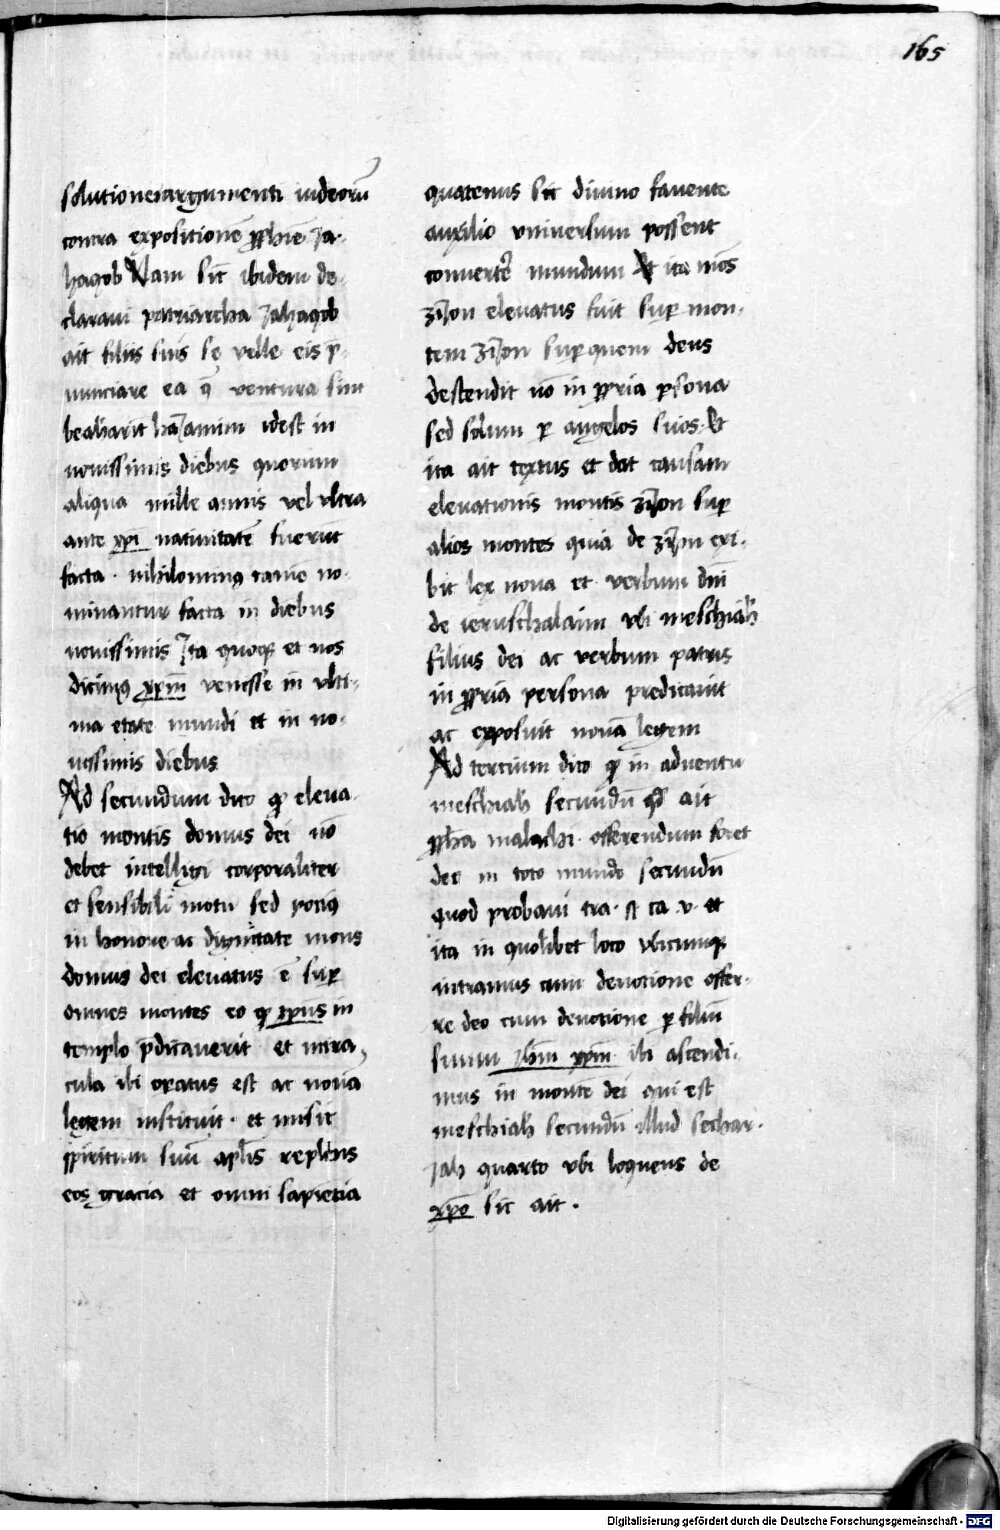 165
solutione argumenti iudeorū
contra expositionē ꝓphie Ja-
haqob Nam sic̄ ibidem de-
claraui patriarcha Jahaqob
ait filiis suis se velle eis p̄-
nunciare ea q̄ ventura sint
beaharit haJamim idest in
nouissimis diebus quorum
aliqua mille annis vel vltra
ante xp̄i natiuitatē fuerūt
facta · nihilominꝰ tamē no-
minantur facta in diebus
nouissimis Ita quoqꝫ et nos
dicimꝰ xp̄m̄ venisse in vlti-
ma etate mundi et in no-
uissimis diebus
Ad secundum dico ꝙ eleua-
tio montis domus dei nō
debet intelligi corporaliter
et sensibili motu sed pociꝰ
in honore ac dignitate mons
domus dei eleuatus ē suꝑ
omnes montes eo ꝙ xp̄us in
templo p̄dicauerit et mira-
cula ibi oꝑatus est ac nouā
legem instituit · et misit
spiritum suū apl̄is replens
eos gracia et omni sapiētia
quatenus sic diuino fauente
auxilio vniuersum possent
conuertē mundum Et ita mōs
zijon eleuatus fuit suꝑ mon-
tem zijon suꝑ quem deus
descendit nō in ꝓpria ꝑsona
sed solum ꝑ angelos suos · Et
ita ait textus et dat causam
eleuationis montis zijon suꝑ
alios montes quia de zijon exi-
bit lex noua et verbum dn̄i
de ieruschalaim vbi meschiah
filius dei ac verbum patris
in ꝓpria persona predicauit
ac exposuit nouā legem
Ad tercium dico ꝙ in aduentu
meschiah secundū qd̄ ait
ꝓph̄a malachi · offerendum foret
deo in toto mundo secundū
quod probaui tra· ca v· et
ita in quolibet loco vbicumqꝫ
intramus cum deuotione offer-
re deo cum deuotione ꝑ filiū
suum Ihm̄ xp̄m̄ ibi ascendi-
mus in monte dei qui est
meschiah secundū illud sechar-
jah quarto vbi loquens de
xp̄o sic ait ·
Digitalisierung gefördert durch die Deutsche Forschungsgemeinschaft - DFG